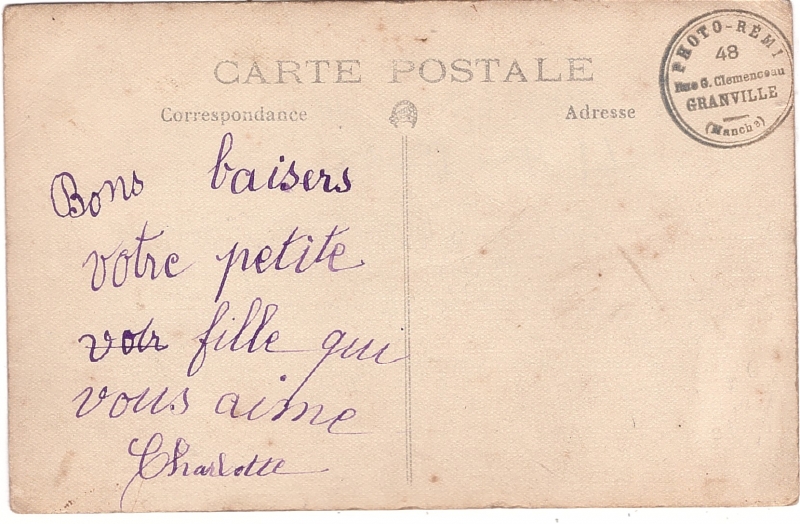 CARTE POSTALE
Correspondance
Adresse
PHOTO-RÉMI
48
Rue G. Clemenceau
GRANVILLE
(Manche)
Bons baisers
votre petite
votr fille qui
vous aime
Charlotte